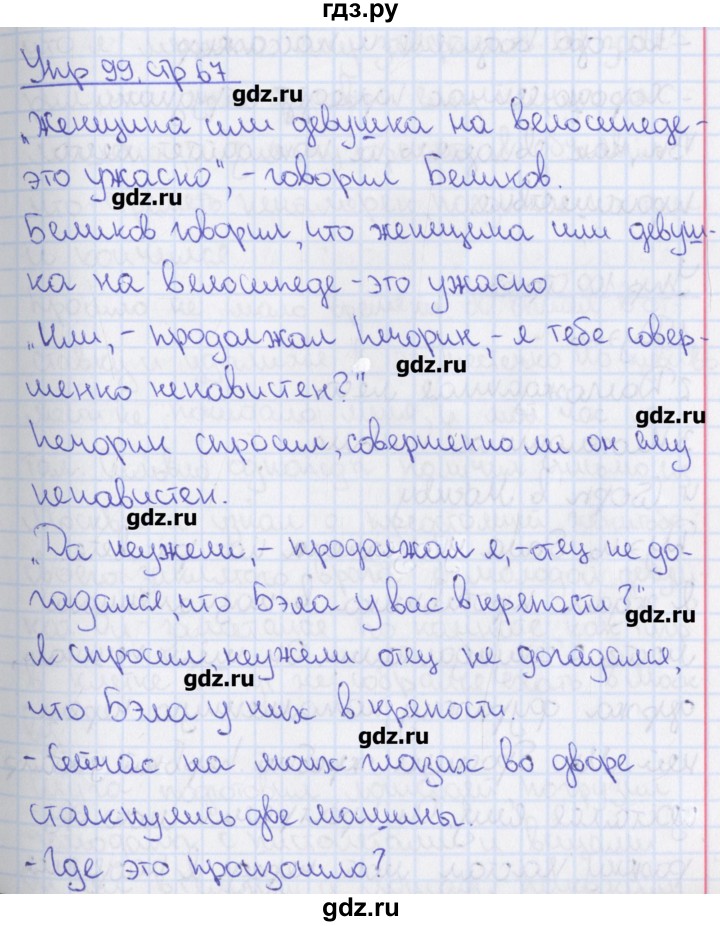 гдз.ру
Упр 99, стр 67
gdz.ru
„Женщина или девушка на велосипеде-
это ужасно", - говорил Беликов.
gdz.ru
Беликов говорил, что женщина или девуш-
ка на велосипеде - это ужасно
„Или, - продолжал Печорин, - я тебе совер-
gdz.ru
шенно ненавистен?"
gdz.ru
Печорин спросил, совершенно ли он ему
ненавистен.
gdz.ru
„Да неужели, - продолжал я, - отец не до-
гадался, что Бэла у вас в крепости?"
gdz.ru
Я спросил, неужели отец не догадался,
gdz.ru
что Бэла у них в крепости.
gdz.ru
- Сейчас на моих глазах во дворе
столкнулись две машины.
- Где это произошло?
gdz.ru